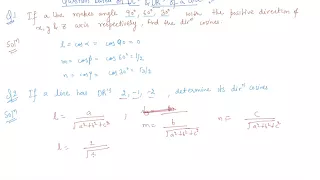 Question based on DC's & DR's of a line
Q1 If a line makes angle 90°, 60°, 30° with the positive direction of
x, y & z axis respectively, find the dirⁿ cosines.
Solⁿ l = cos α = cos 90 = 0
m = cos β = cos 60° = 1/2
n = cos γ = cos 30° = √3/2
Q2 If a line has DR's 2, -1, -2, determine its dirⁿ cosines
Solⁿ l = a/√(a²+b²+c²) ; m = b/√(a²+b²+c²) n = c/√(a²+b²+c²)
l = 2/√9